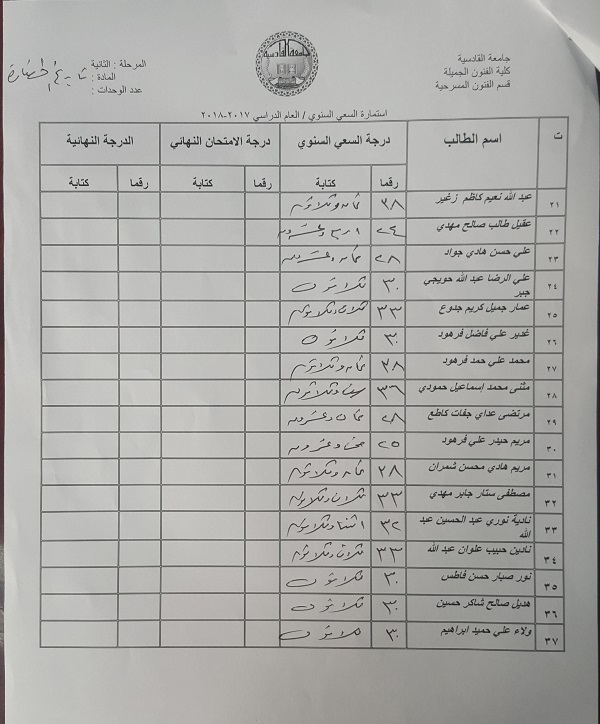 جامعة القادسية
كلية الفنون الجميلة
قسم الفنون المسرحية
المرحلة : الثانية
المادة : تاريخ الحضارة
عدد الوحدات :
جامعة القادسية
استمارة السعي السنوي / العام الدراسي ٢٠١٧-٢٠١٨
ت اسم الطالب درجة السعي السنوي درجة الامتحان النهائي الدرجة النهائية
رقما كتابة رقما كتابة رقما كتابة
٢١ عبد الله نعيم كاظم زغير ٣٨ ثمان وثلاثون
٢٢ عقيل طالب صالح مهدي ٢٤ اربع وعشرون
٢٣ علي حسن هادي جواد ٢٨ ثمان وعشرون
٢٤ علي الرضا عبد الله حويجي جبر ٣٠ ثلاثون
٢٥ عمار جميل كريم جدوع ٣٣ ثلاث وثلاثون
٢٦ غدير علي فاضل فرهود ٣٠ ثلاثون
٢٧ محمد علي حمد فرهود ٣٨ ثمان وثلاثون
٢٨ مثنى محمد إسماعيل حمودي ٣٦ ست وثلاثون
٢٩ مرتضى عداي جفات كاطع ٢٨ ثمان وعشرون
٣٠ مريم حيدر علي فرهود ٢٥ خمس وعشرون
٣١ مريم هادي محسن شمران ٣٨ ثمان وثلاثون
٣٢ مصطفى ستار جابر مهدي ٣٣ ثلاث وثلاثون
٣٣ نادية نوري عبد الحسين عبد الله ٣٢ اثنا وثلاثون
٣٤ نادين حبيب علوان عبد الله ٣٣ ثلاث وثلاثون
٣٥ نور صبار حسن فاطس ٣٠ ثلاثون
٣٦ هديل صالح شاكر حسين ٣٠ ثلاثون
٣٧ ولاء علي حميد ابراهيم ٣٠ ثلاثون